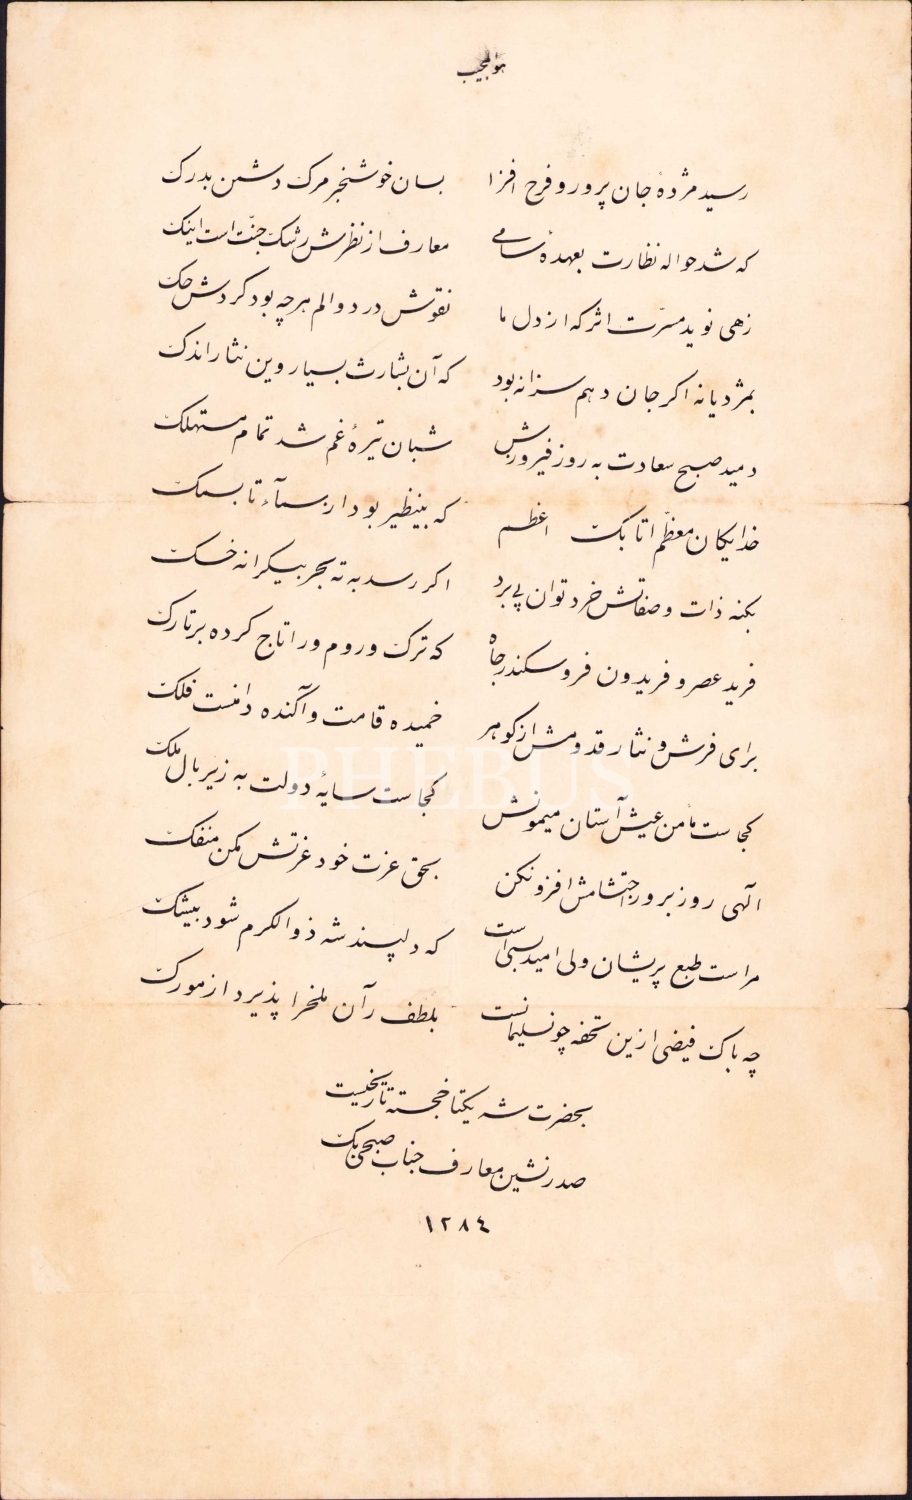 هو المجیب
رسید مژدهٔ جان پرور و فرح افزا بسان خوشخبر مرک دشمن بدرک
که شد حواله نظارت بعهدهٔ سامی معارف از نظرش رشک جنّت است اینک
زهی نوید مسرّت اثر که از دل ما نقوش درد و الم هرچه بود کردش حک
بمژدیانه اکر جان دهم سزا نه بود که آن بشارت بسیار وین نثار اندک
دمید صبح سعادت به روز فیروزش شبان تیرهٔ غم شد تمام مستهلک
خدایکان معظّم اتابک اعظم که بینظیر بود از سمآء تا بسمک
بکنه ذات و صفاتش خرد توان پی برد اکر رسد به ته بحر بیکرانه خسک
فرید عصر و فریدون فر و سکندر جاه که ترک و روم ورا تاج کرده بر تارک
برای فرش و نثار قدومش از کوهر خمیده قامت و آکنده دامنست فلک
کجاست مأمن عیش آستان میمونش کجاست سایهٔ دولت به زیر بال ملک
الهی روز بروز احتشامش افزون کن بحق عزت خود عزتش مکن منفک
مراست طبع پریشان ولی امید بسی است که دلپسند شه ذو الکرم شود بیشک
چه باک فیضی ازین تحفه چو نسلیمانست بلطف ران ملخ را پذیرد از مورک
بحضرت شه یکتا خجسته تاریخیست
صدر نشین معارف جناب صبحی بک
١٢٨٤
PHEBUS